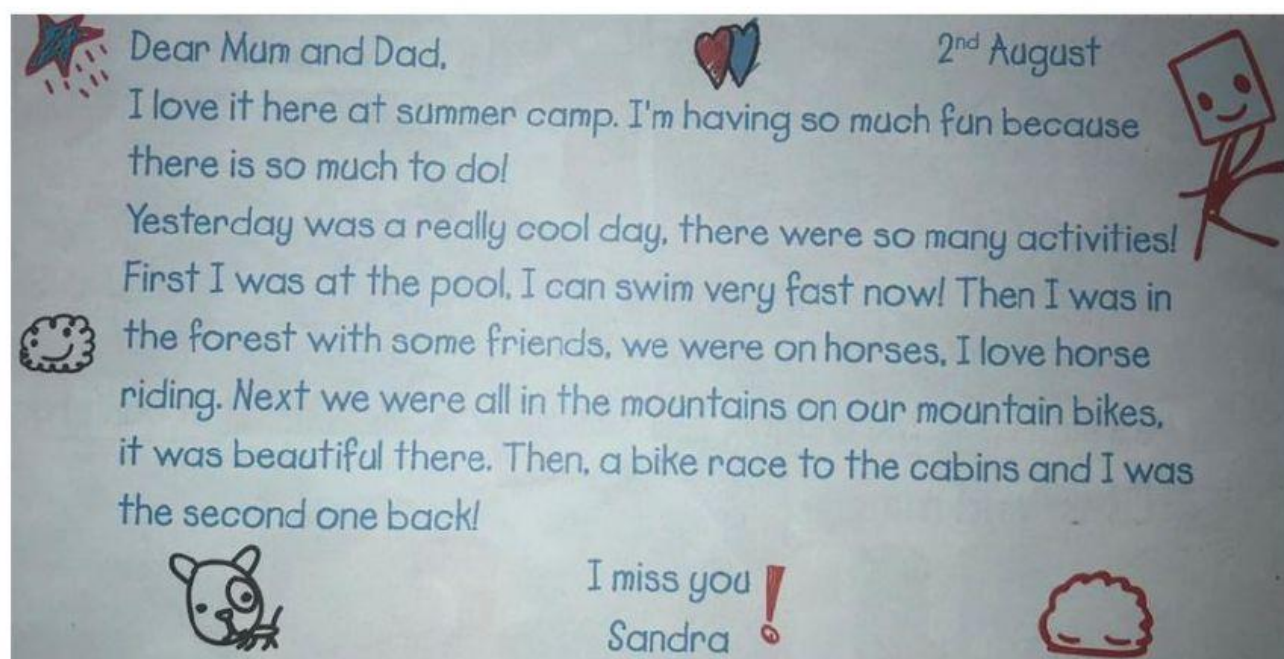 Dear Mum and Dad, 2nd August
I love it here at summer camp. I'm having so much fun because
there is so much to do!
Yesterday was a really cool day, there were so many activities!
First I was at the pool, I can swim very fast now! Then I was in
the forest with some friends, we were on horses, I love horse
riding. Next we were all in the mountains on our mountain bikes,
it was beautiful there. Then, a bike race to the cabins and I was
the second one back!
I miss you!
Sandra